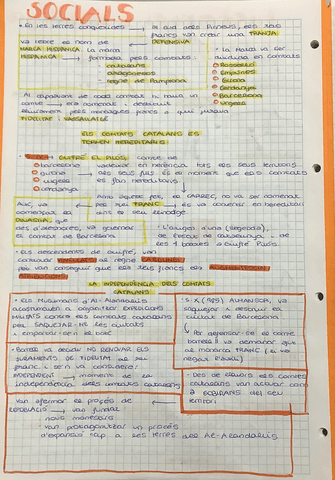 SOCIALS
• En les terres conquerides → al sud dels Pirineus, els reis
francs van crear una FRANJA
DEFENSIVA
va rebre el nom de
MARCA HISPÀNICA. La marca
HISPÀNICA → formada pels comtats
• catalans
• aragonesos
• regne de Pamplona
• La Marca va ser
dividida en comtats
• Rosselló
• Empúries
• Girona
• Cerdanya
• Barcelona
• Urgell
Al capdavant de cada comtat hi havia un
comte → era nomenat i destituït
lliurement pels monarques francs a qui jurava
FIDELITAT I VASSALLATGE
ELS COMTATS CATALANS ES
TORNEN HEREDITARIS
GUIFRÉ EL PILÓS: comte de
• Barcelona
• Girona
• Urgell
• Cerdanya
en herència tots els seus territoris
als seus fills. És el moment que els comtats
es fan hereditaris.
Amb aquest fet, el CÀRREC, no va ser nomenat
pel rei FRANC i es va convertir en hereditari
dins el seu llinatge
Així, va
començar la
DINASTIA, que
des d'aleshores, va governar
el comtat de Barcelona
de l'escut de Catalunya i de
les 4 barres a Guifré Pilós
• Els descendents de Guifré, van
continuar VINCULATS al regne CAROLINGI
per van conseguir que els reis francs els
LA INDEPENDÈNCIA DELS COMTATS
CATALANS
• Els Musulmans d'Al-Àndalus
acostumaven a organitzar expedicions
MILITARS contra els comtats catalans
per SAQUEJAR-NE les ciutats
i emportar-se'n el botí
• S. X (985) ALMANSOR, va
saquejar i destruir la
ciutat de Barcelona
Per defensar-se el comte
Borrell II va demanar ajut
al monarca FRANC (li va
negar l'ajut)
• Borrell va decidir NO RENOVAR ELS
JURAMENTS DE FIDELITAT al rei
franc i se'n va considerar
INDEPENDENT → moment de la
independència dels comtats catalans
• Des de llavors els comtes
catalans van actuar com
a SOBIRANS del seu
territori
Van afermar el procés de
REPOBLACIÓ → van fundar
nous monestirs
• van protagonitzar un procés
d'expansió cap a les terres del Al-Àndalus